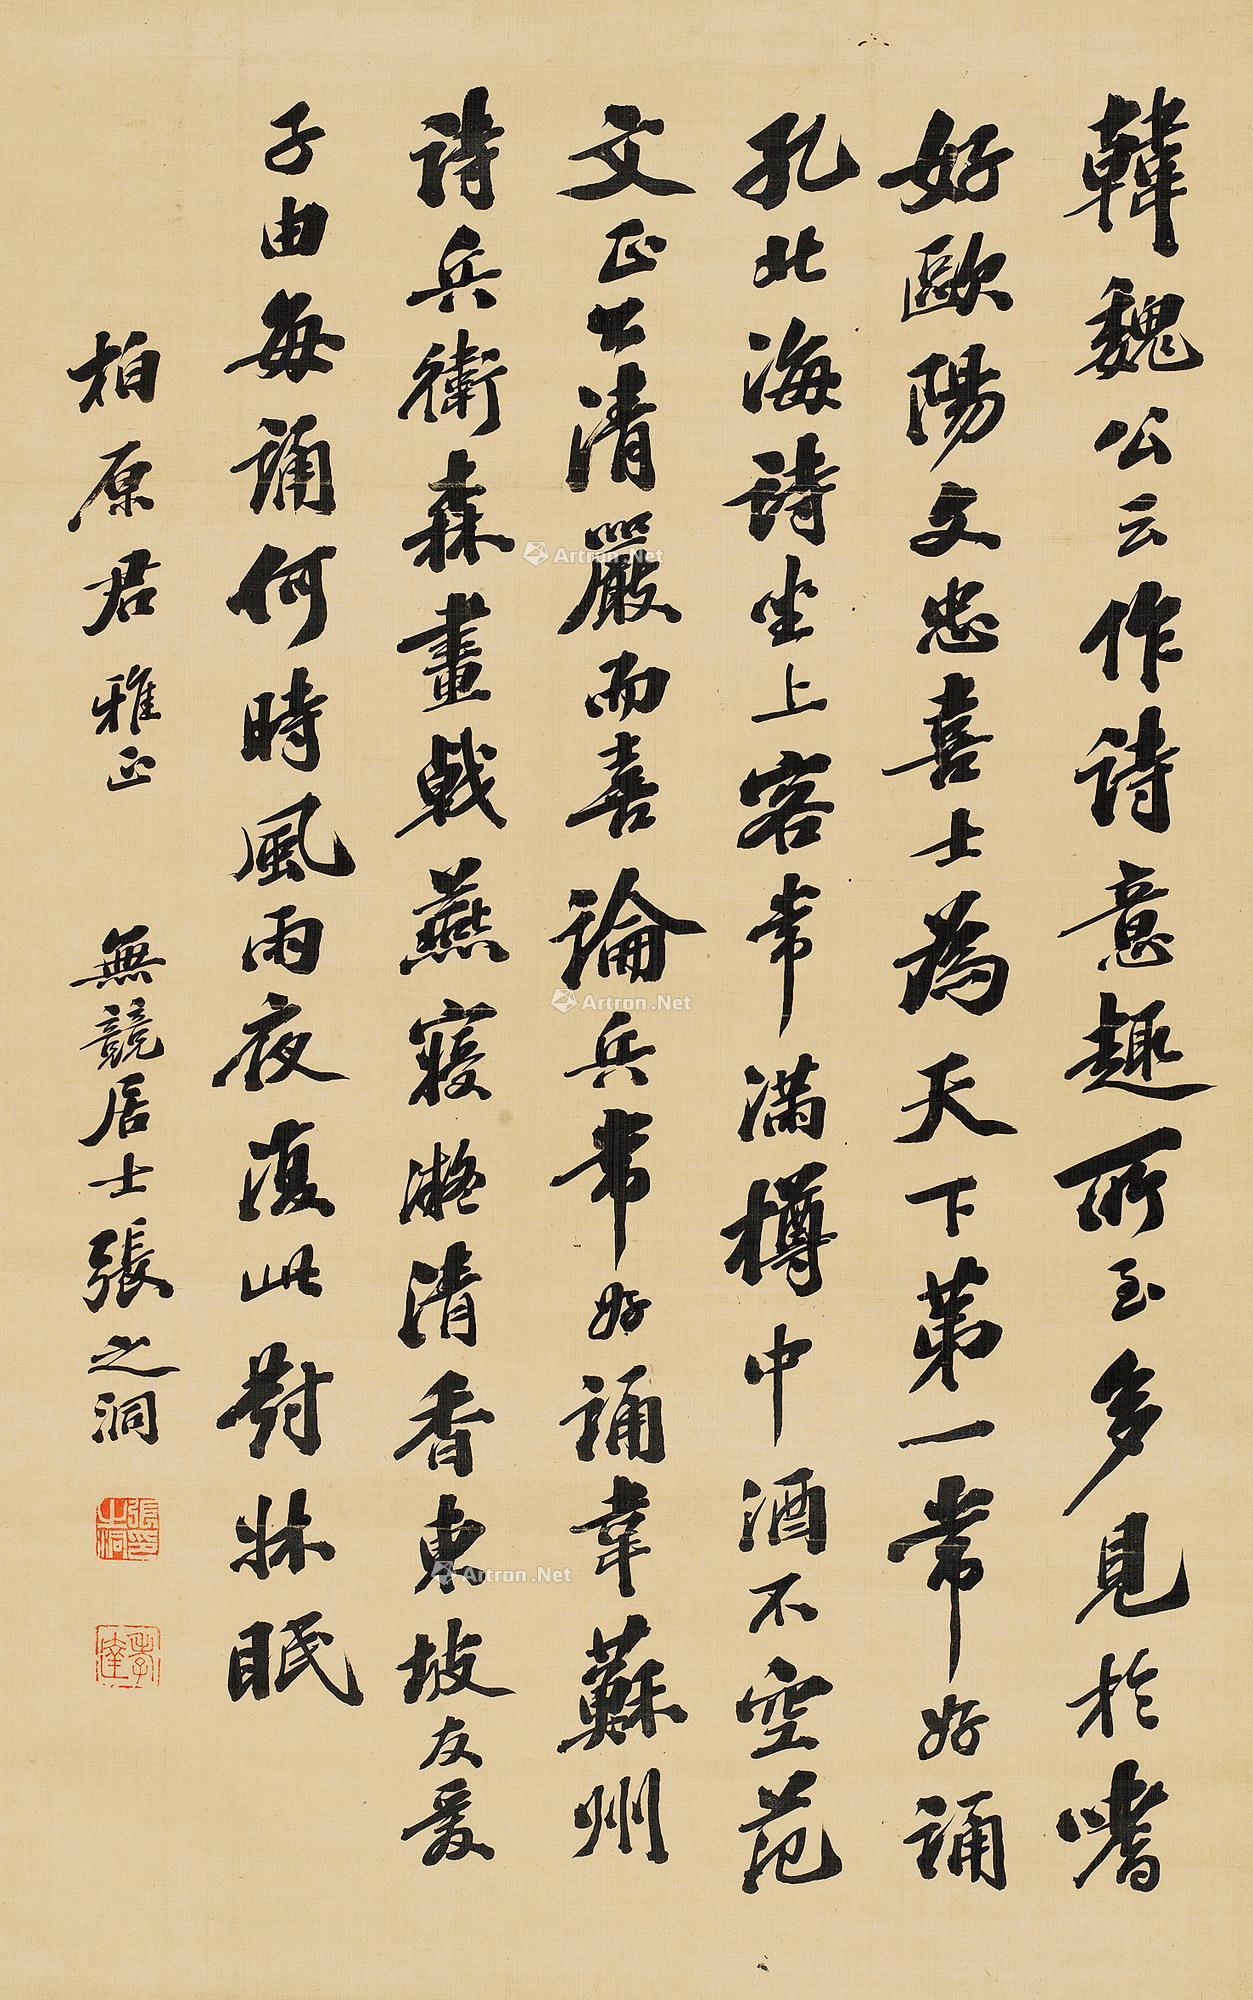 韓魏公云作詩意趣所至多見於嗜
好歐陽文忠喜士為天下第一常好誦
孔北海詩坐上客常滿樽中酒不空范
文正公清嚴而喜論兵常好誦韋蘇州
詩兵衛森畫戟燕寢凝清香東坡友愛
子由每誦何時風雨夜復此對牀眠
柏原君雅正
無競居士張之洞
張之洞印
孝達
Artron.Net
Artron.Net
Artron.Net